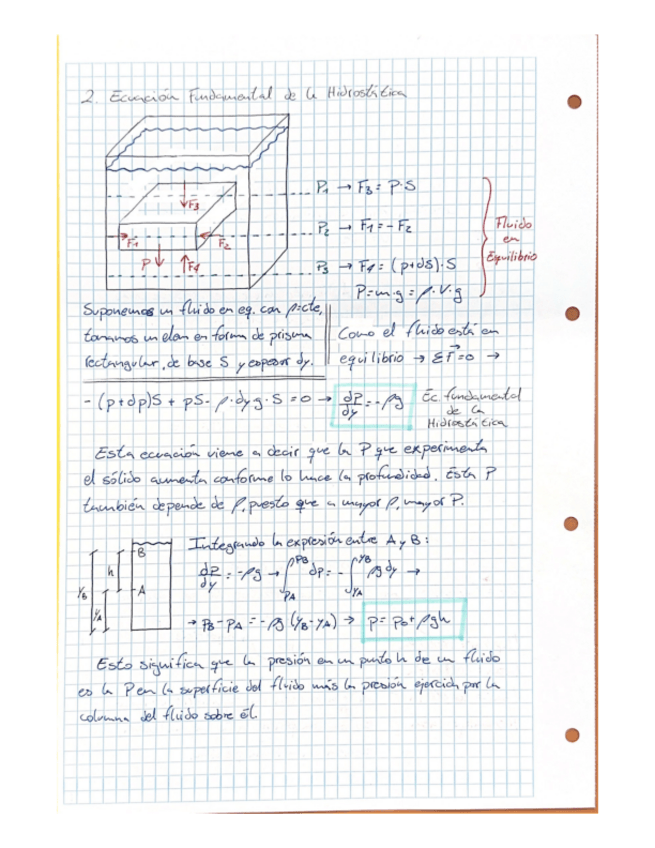 2. Ecuación Fundamental de la Hidrostática
P₁ → F₃ = P·S
P₂ → F₁ = -F₂
P₃ → F₄ = (p+dS)·S
P = m·g = ρ·V·g
Fluido
en
Equilibrio
F₃
F₁
F₂
P
F₄
Suponemos un fluido en eq. con ρ=cte,
tomamos un elem en forma de prisma
rectangular, de base S y espesor dy.
Como el fluido está en
equilibrio → ΣF⃗=0 →
-(p+dp)S + pS - ρ·dy g·S = 0 → dP/dy = -ρg
Ec. fundamental
de la
Hidrostática
Esta ecuación viene a decir que la P que experimenta
el sólido aumenta conforme lo hace la profundidad. Esta P
también depende de ρ, puesto que a mayor ρ, mayor P.
B
h
A
y_B
y_A
Integrando la expresión entre A y B:
dP/dy = -ρg → ∫_PA^PB dp = -∫_yA^yB ρg dy →
→ P_B - P_A = -ρg (y_B - y_A) → p = p₀ + ρgh
Esto significa que la presión en un punto h de un fluido
es la P en la superficie del fluido más la presión ejercida por la
columna del fluido sobre él.